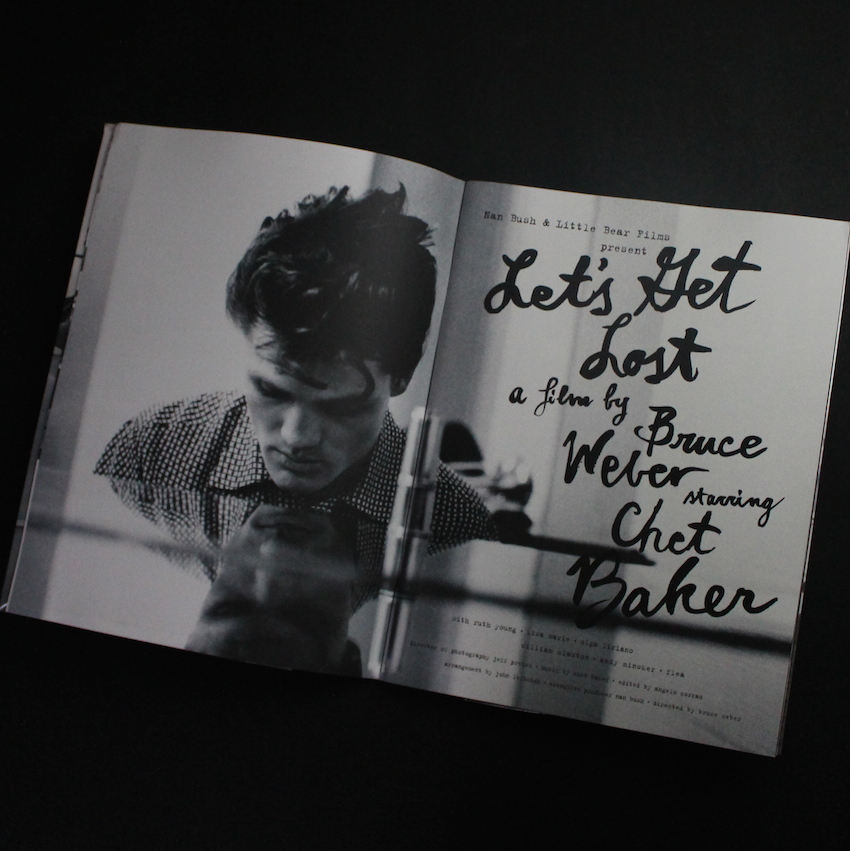 Nan Bush & Little Bear Films
present
Let's Get
Lost
a film by
Bruce
Weber
starring
Chet
Baker
with ruth young • lisa marie •
william claxton • andy minsker • flea
director of photography jeff preiss • music by chet baker • edited by angelo corrao
arrangement by john • executive producer nan bush • directed by bruce weber